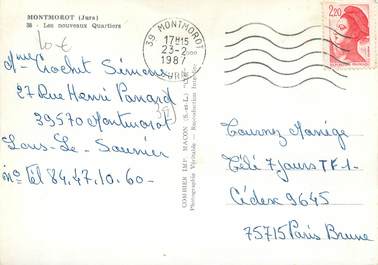 MONTMOROT (Jura)
38 - Les nouveaux Quartiers
10 €
Mme Crochet Simone
27 Rue Henri Ponard
39570 Montmorot
Lons-Le-Saunier
no Tél 84.47.10.60-
39 MONTMOROT
17H15
23-2
1987
JURA
2,20
COMBIER IMP. MACON (S.-et-L.)
Photographie Véritable - Reproduction Interdite
Tournez Manège
Télé 7 Jours TF-1-
Cédex 9645
75715 Paris Brune